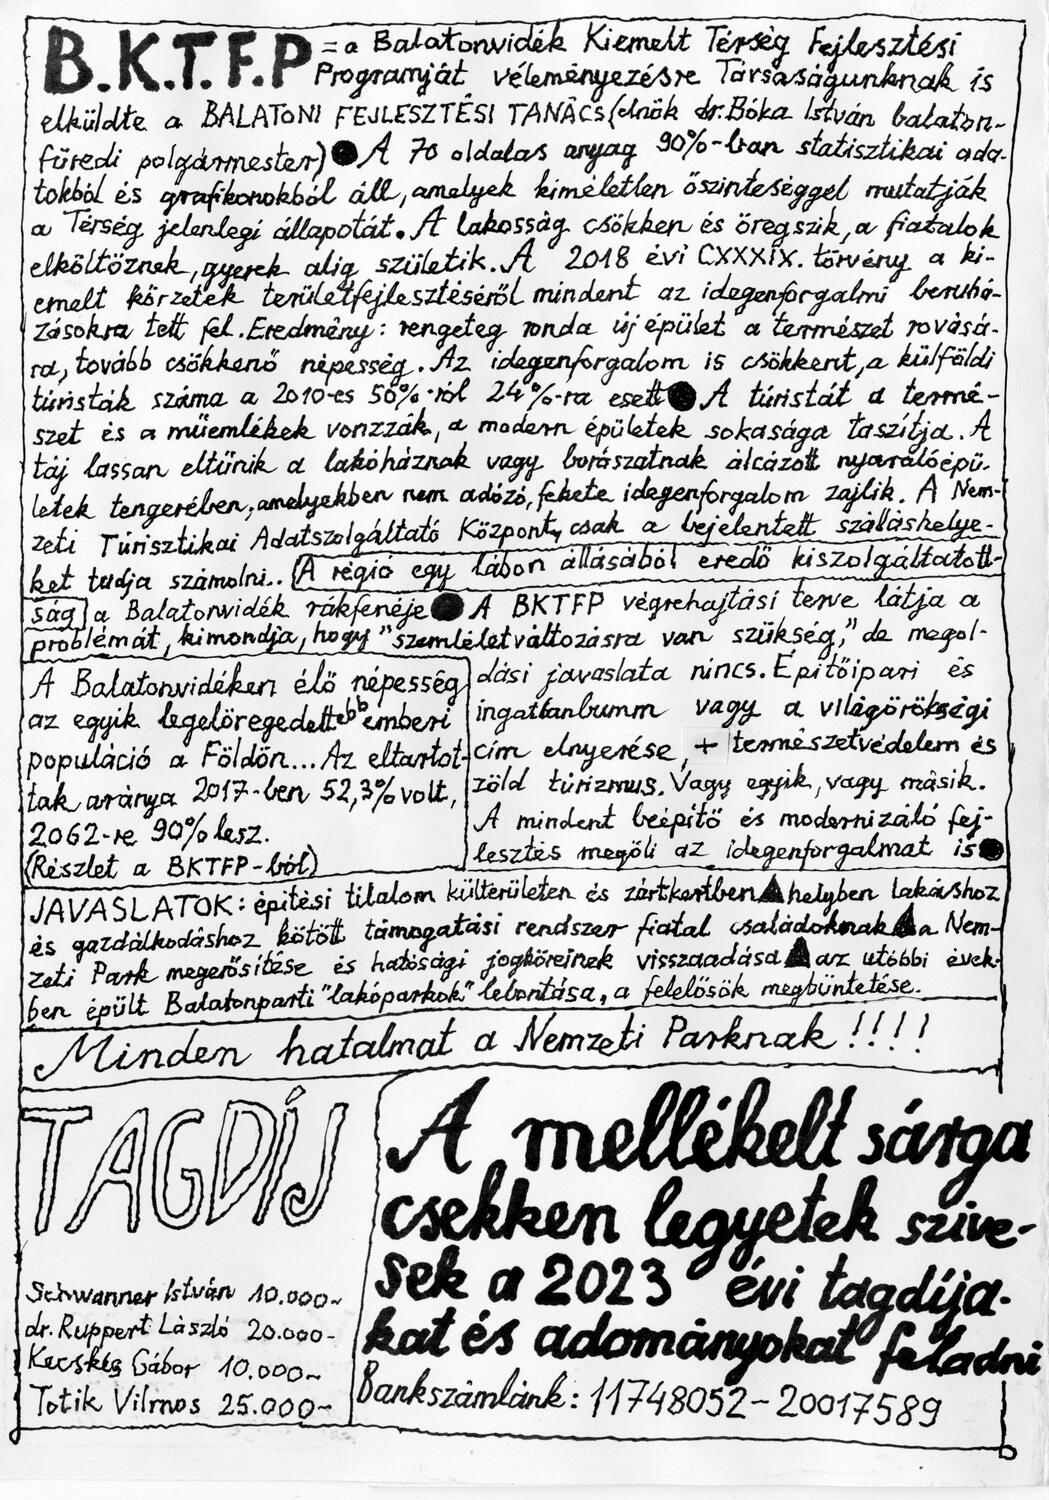 B.K.T.F.P = a Balatonvidék Kiemelt Térség Fejlesztési
Programját véleményezésre Társaságunknak is
elküldte a BALATONI FEJLESZTÉSI TANÁCS (elnök dr. Bóka István balaton-
füredi polgármester) ● A 70 oldalas anyag 90%-ban statisztikai ada-
tokból és grafikonokból áll, amelyek kiméletlen őszinteséggel mutatják
a Térség jelenlegi állapotát. A lakosság csökken és öregszik, a fiatalok
elköltöznek, gyerek alig születik. A 2018 évi CXXXIX. törvény a ki-
emelt körzetek területfejlesztéséről mindent az idegenforgalmi beruhá-
zásokra tett fel. Eredmény: rengeteg ronda új épület a természet rovásá-
ra, tovább csökkenő népesség. Az idegenforgalom is csökkent, a külföldi
túristák száma a 2010-es 50%-ról 24%-ra esett ● A túristát a termé-
szet és a műemlékek vonzzák, a modern épületek sokasága taszítja. A
táj lassan eltűnik a lakóháznak vagy borászatnak álcázott nyaralóépü-
letek tengerében, amelyekben nem adózó, fekete idegenforgalom zajlik. A Nem-
zeti Túrisztikai Adatszolgáltató Központ, csak a bejelentett szálláshelye-
ket tudja számolni.. A régió egy lábon állásából eredő kiszolgáltatott-
ság a Balatonvidék rákfenéje ● A BKTFP végrehajtási terve látja a
problémát, kimondja, hogy "szemléletváltozásra van szükség," de megol-
dási javaslata nincs. Építőipari és
ingatlanbumm vagy a világörökségi
cím elnyerése, + természetvédelem és
zöld túrizmus. Vagy egyik, vagy másik.
A mindent beépítő és modernizáló fej-
lesztés megöli az idegenforgalmat is ●
A Balatonvidéken élő népesség
az egyik legelöregedettebb emberi
populáció a Földön... Az eltartot-
tak aránya 2017-ben 52,3% volt,
2062-re 90% lesz.
(Részlet a BKTFP-ból)
JAVASLATOK: építési tilalom külterületen és zártkertben ▲ helyben lakáshoz
és gazdálkodáshoz kötött támogatási rendszer fiatal családoknak ▲ a Nem-
zeti Park megerősítése és hatósági jogköreinek visszaadása ▲ az utóbbi évek-
ben épült Balatonparti "lakóparkok" lebontása, a felelősök megbüntetése.
Minden hatalmat a Nemzeti Parknak !!!!
TAGDÍJ
Schwanner István 10.000~
dr. Ruppert László 20.000-
Kecskés Gábor 10.000~
Totik Vilmos 25.000~
A mellékelt sárga
csekken legyetek szíve-
sek a 2023 évi tagdíja-
kat és adományokat feladni
Bankszámlánk: 11748052-20017589